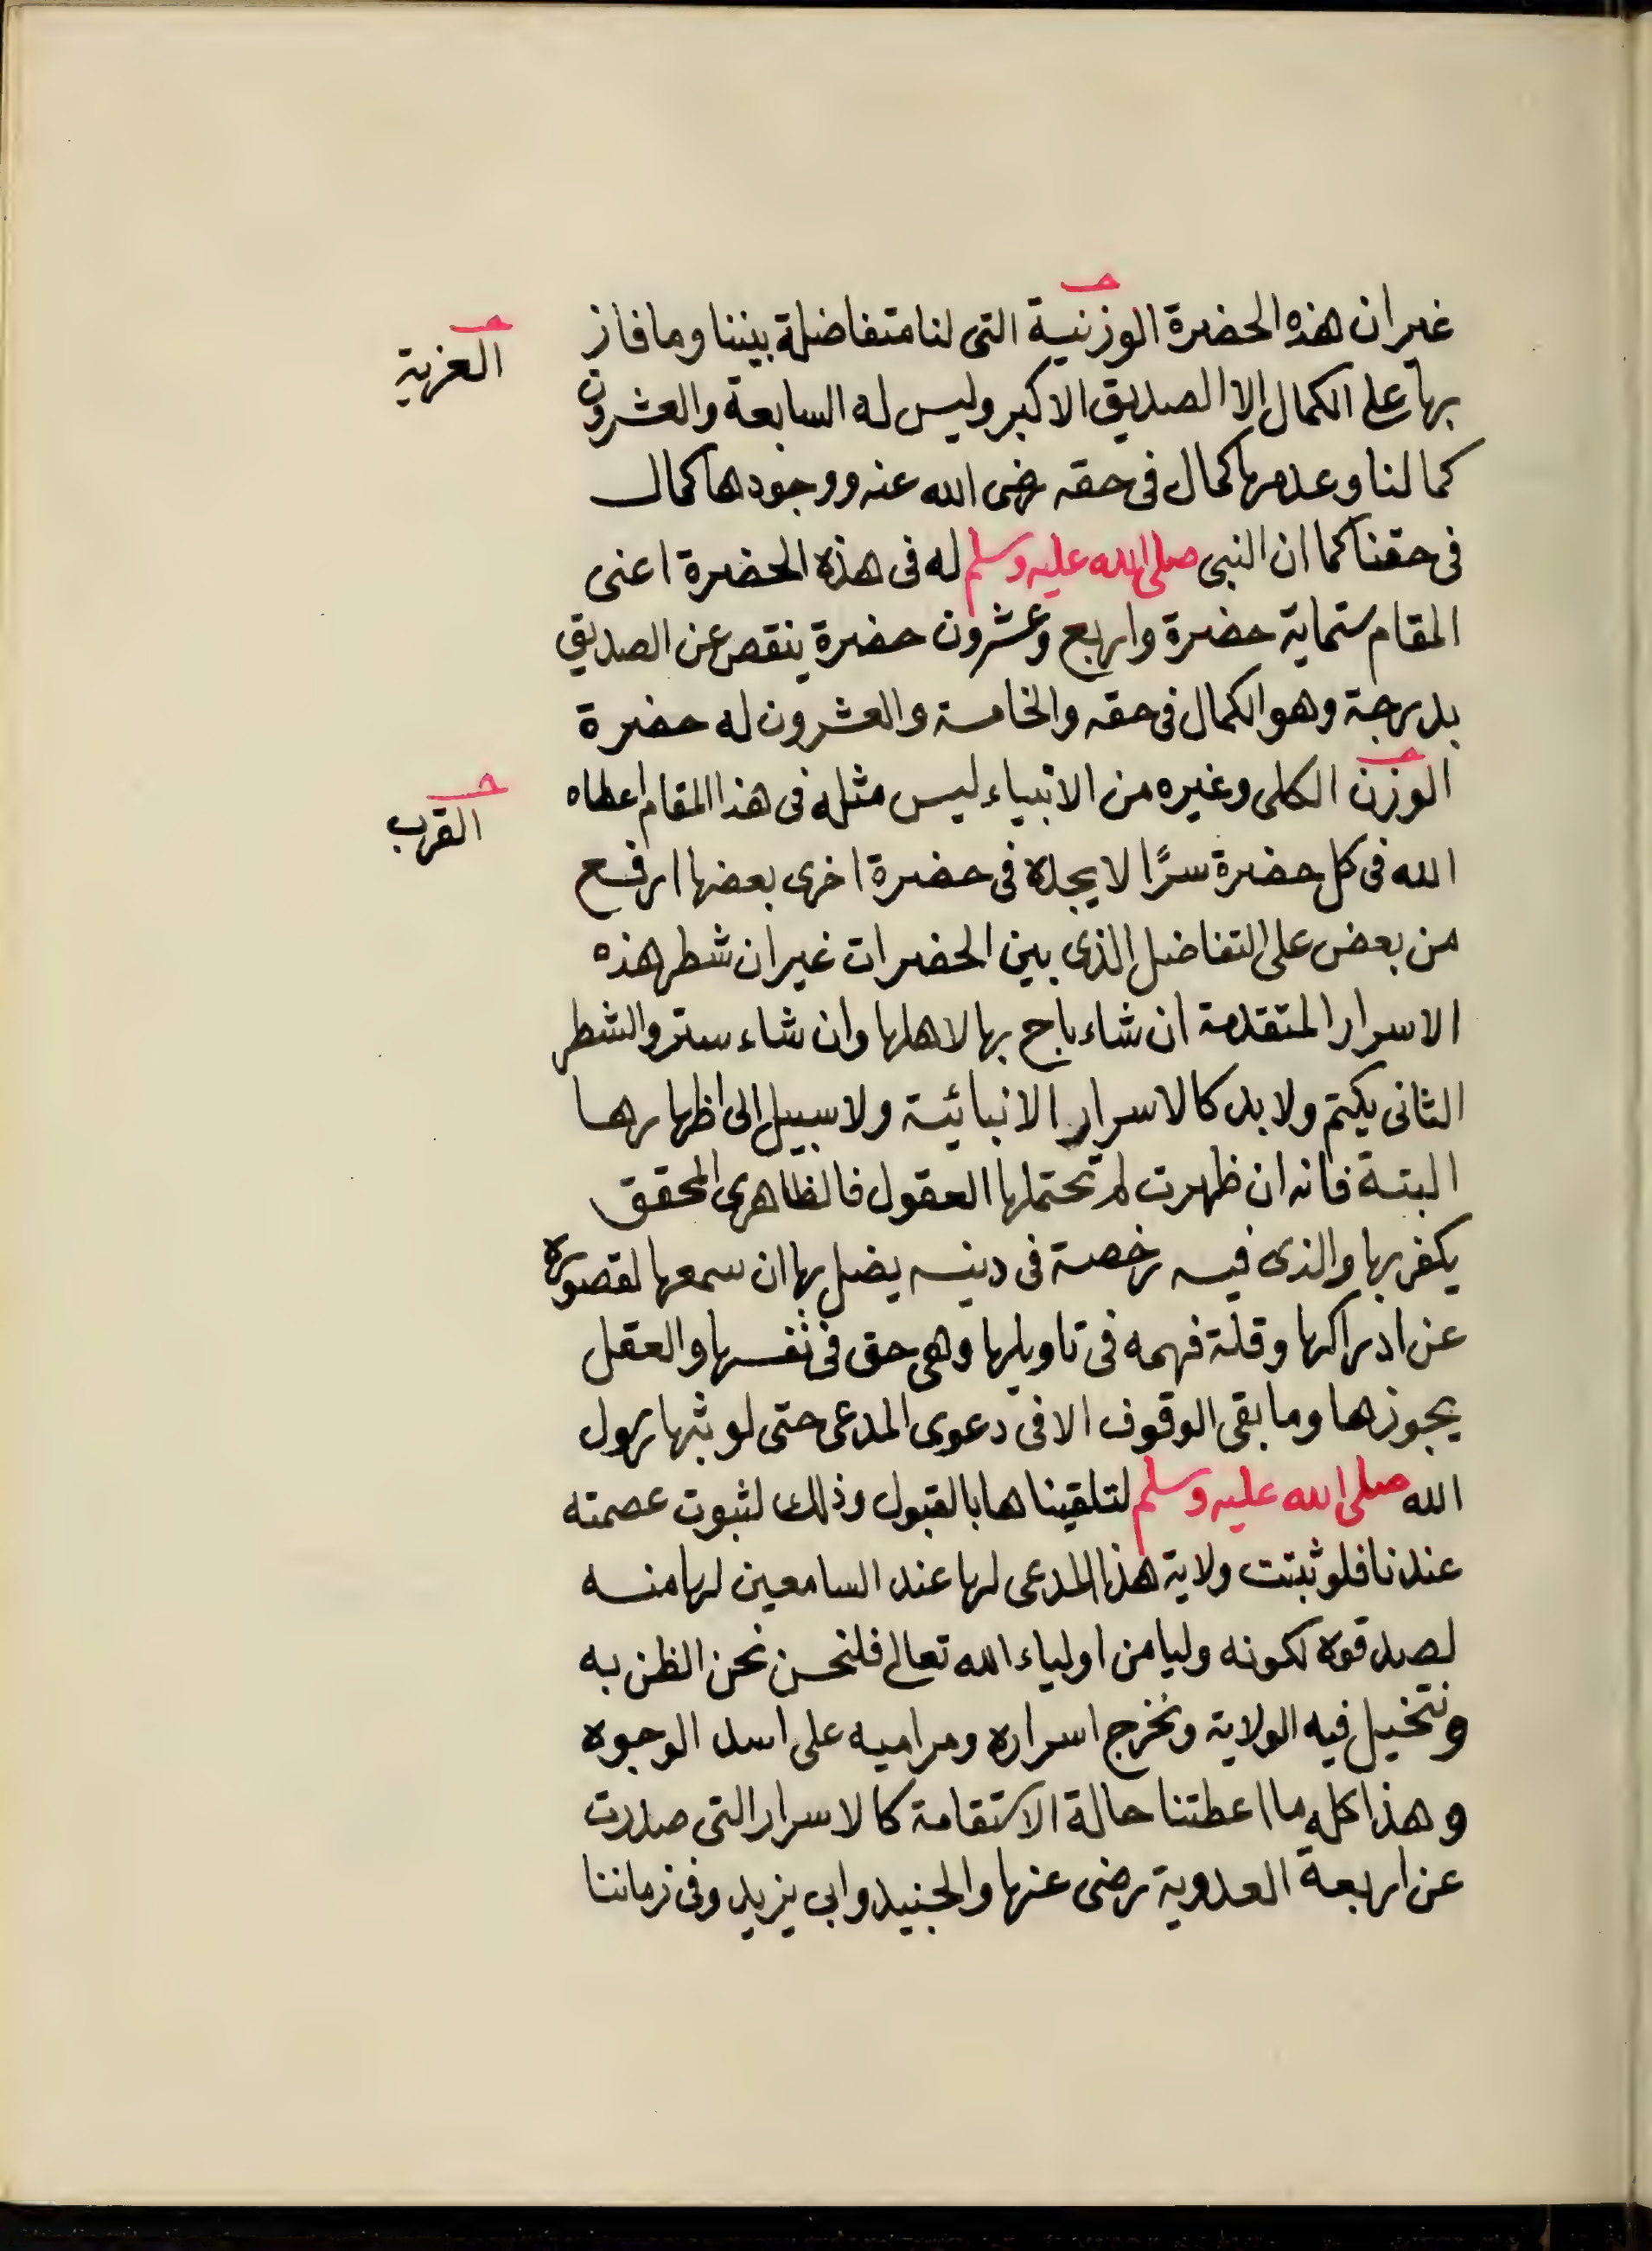 غير ان هذه الحضرة الوزنية التى لنا متفاضلة بيننا وما فاز
العزية
بها على الكمال الا الصديق الاكبر وليس له السابعة والعشرون
كما لنا وعدمها كمال فى حقه رضى الله عنه ووجودها كمال
فى حقنا كما ان النبى صلى الله عليه وسلم له فى هذه الحضرة اعنى
المقام ستماية حضرة واربع وعشرون حضرة ينقص عن الصديقى
بدرجة وهو الكمال فى حقه والخامسة والعشرون له حضرة
الوزن الكلى وغيره من الانبياء ليس مثله فى هذا المقام اعطاه
القرب
الله فى كل حضرة سرًا لا يجده فى حضرة اخرى بعضها ارفع
من بعض على التفاضل الذى بين الحضرات غير ان شطر هذه
الاسرار المتقدمة ان شاء باح بها لاهلها وان شاء ستر والشطر
الثانى يكتم ولا بد كالاسرار الانبائية ولا سبيل الى اظهارها
البتة فانه ان ظهرت لم تحتملها العقول فالظاهرى المحقق
يكفر بها والذى فيه رخصة فى دينه يضل بها ان سمعها لقصوره
عن ادراكها وقلة فهمه فى تاويلها وهى حق فى نفسها والعقل
يجوزها وما بقى الوقوف الا فى دعوى المدعى حتى لو بثها رسول
الله صلى الله عليه وسلم لتلقيناها بالقبول وذلك لثبوت عصمته
عندنا فلو ثبتت ولاية هذا المدعى لها عند السامعين لها منه
لصدقوه لكونه وليا من اولياء الله تعالى فلنحسن نحن الظن به
ونتخيل فيه الولاية ونخرج اسراره ومراميه على اسد الوجوه
وهذا كله ما اعطتنا حالة الاستقامة كالاسرار التى صدرت
عن اربعة العدوية رضى عنها والجنيد وابى يزيد وفى زماننا